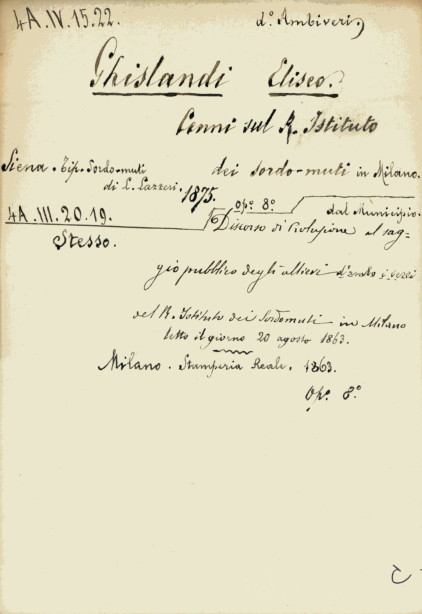 4A.IV.15.22.
d.º Ambiveri
Ghislandi Eliseo.
Cenni sul R. Istituto
dei sordo-muti in Milano.
Siena. Tip. Sordo-muti
di L. Lazzeri, 1875.
op.º 8.º
4A.III.20.19.
dal Municipio.
Stesso.
Discorso di Prolusione al sag=
gio pubblico degli allievi
del R. Istituto dei Sordomuti in Milano
letto il giorno 20 agosto 1863.
Milano. Stamperia Reale. 1863.
Op.º 8.º